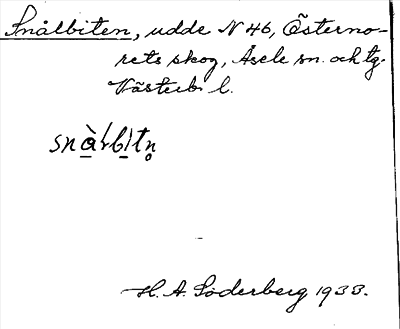 Snålbiten, udde N 46, Österno-
rets skog, Åsele sn. och tg.
Västerb. l.
snàlbitn̥
H. A. Söderberg 1933.